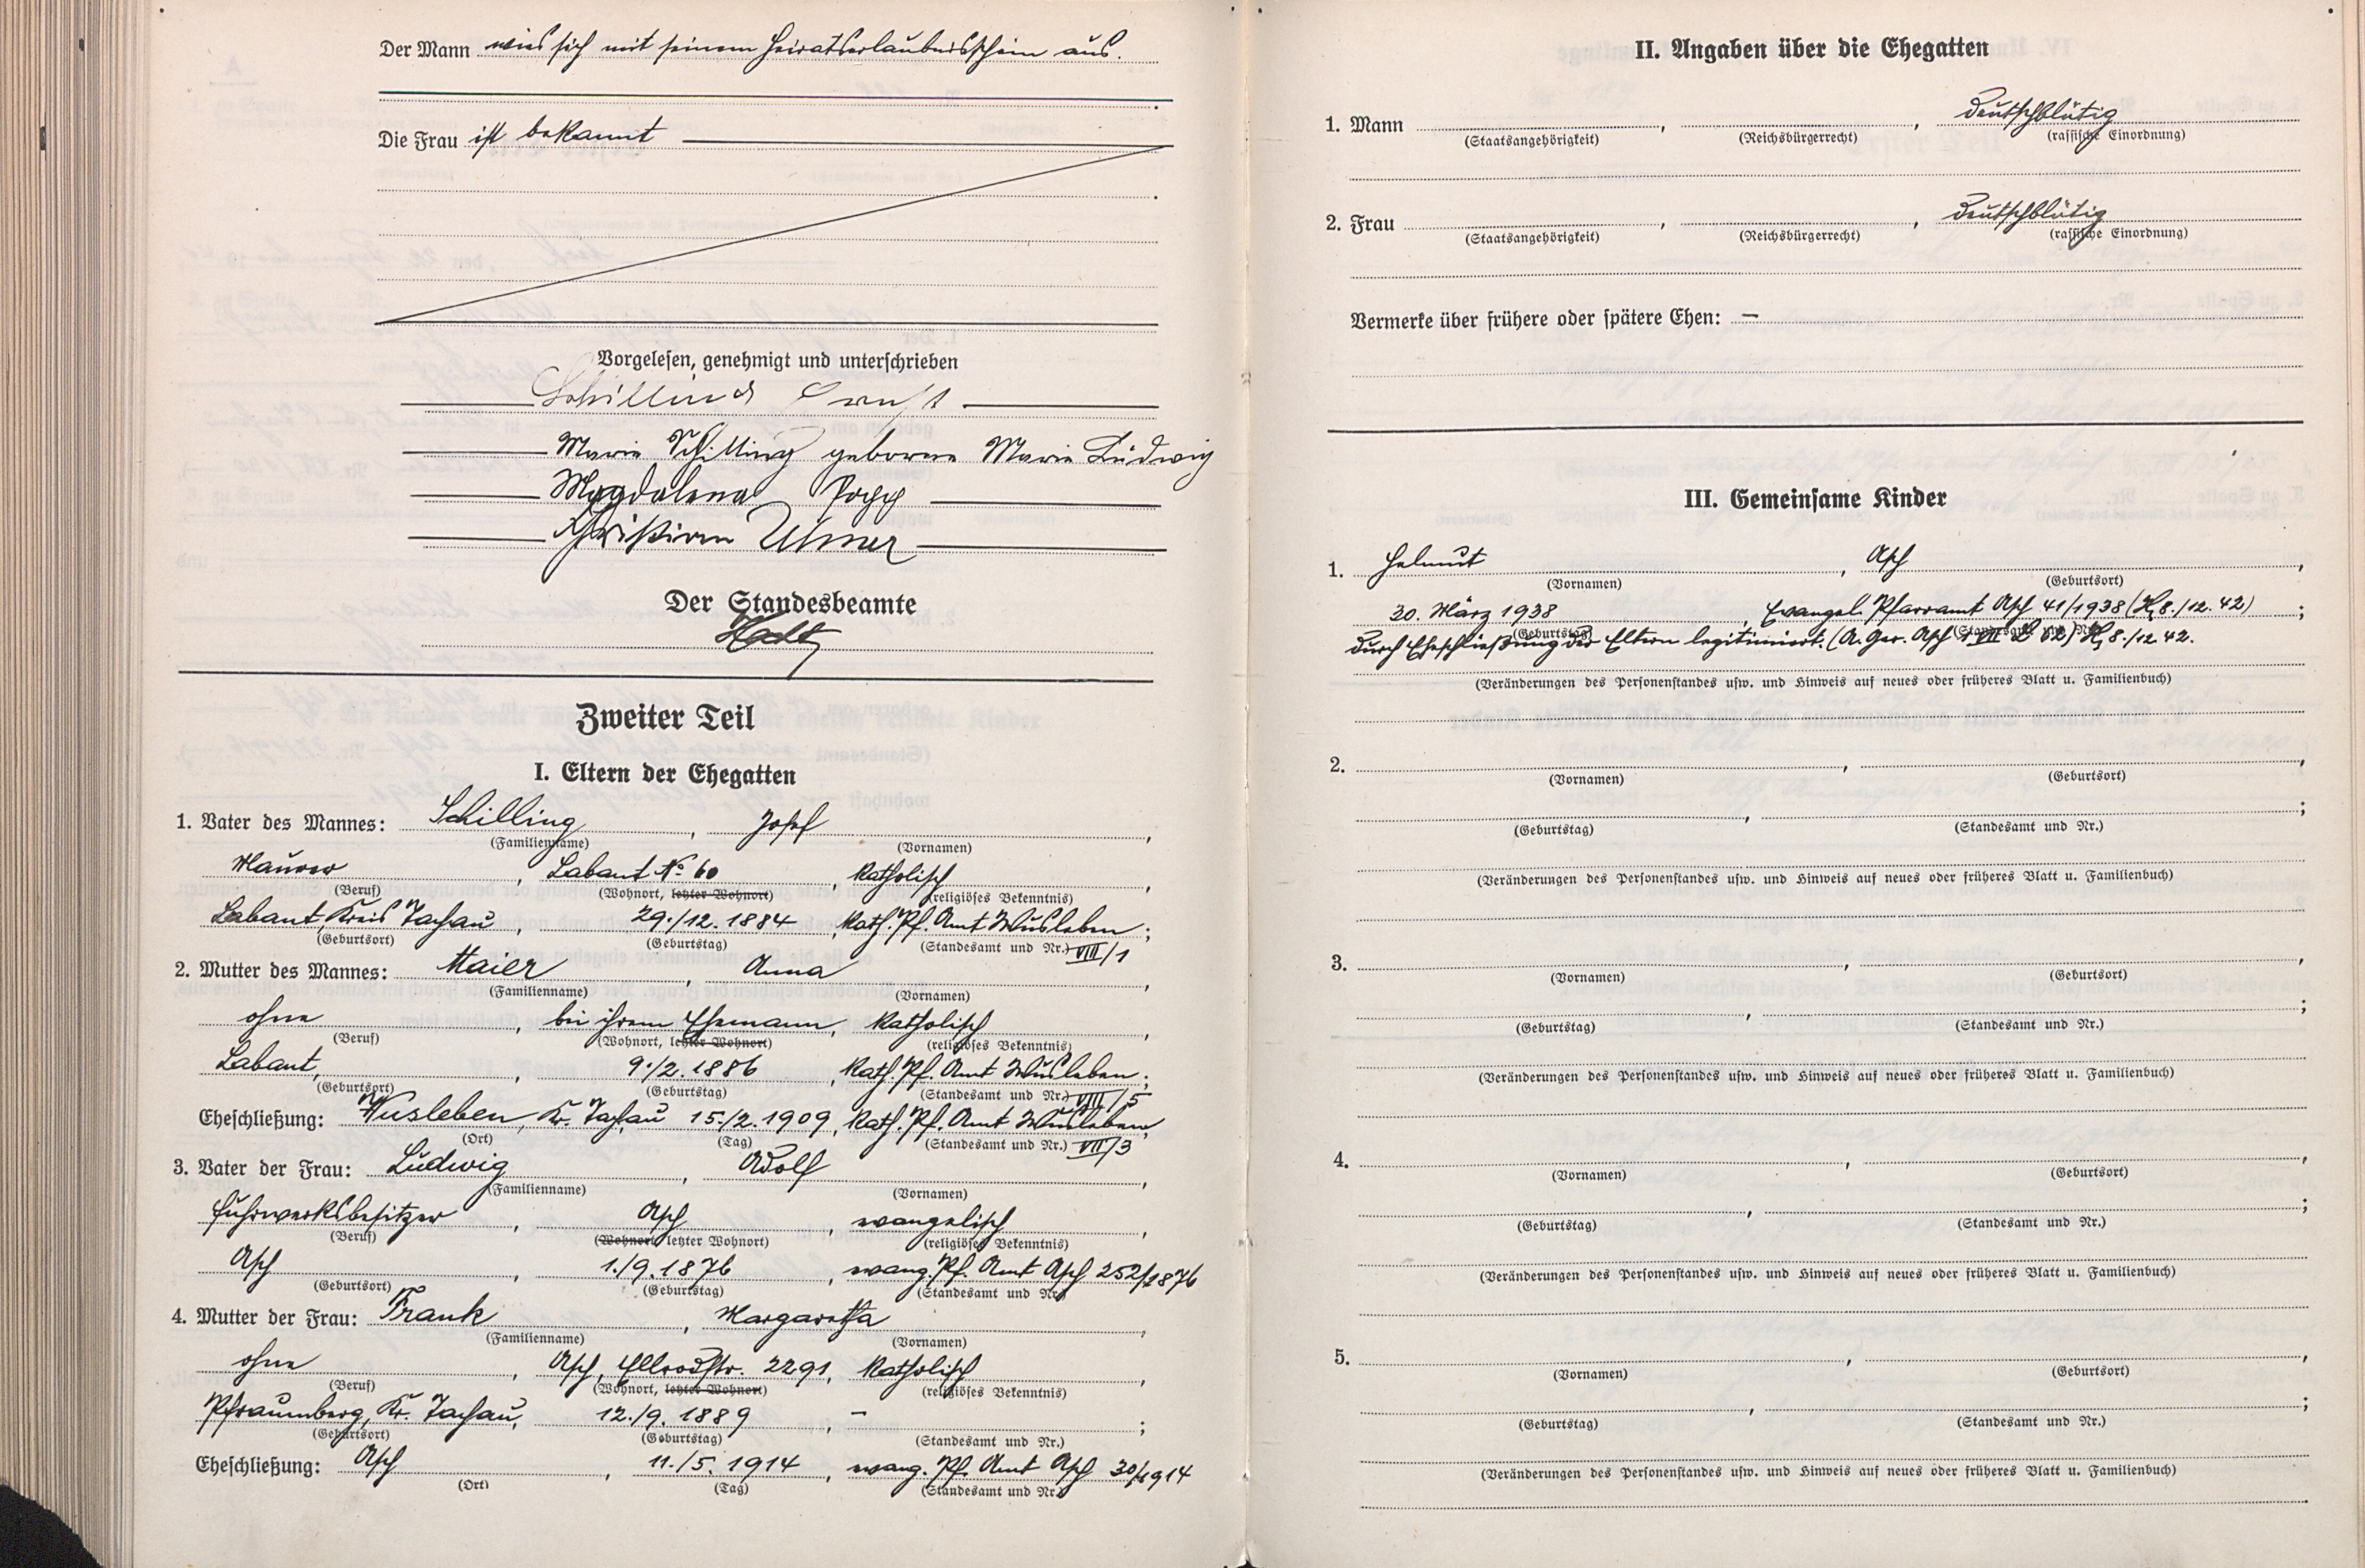 Der Mann wies sich mit seinem Heiratserlaubnisschein aus.
Die Frau ist bekannt
Vorgelesen, genehmigt und unterschrieben
Schilling Ernst
Marie Schilling geborene Marie Ludwig
Magdalena Popp
Christian Ulmer
Der Standesbeamte
Zweiter Teil
I. Eltern der Ehegatten
1. Vater des Mannes: Schilling, Josef,
(Familienname) (Vornamen)
Maurer, Labant No 60, katholisch,
(Beruf) (Wohnort, letzter Wohnort) (religiöses Bekenntnis)
Labant, Kreis Tachau, 29./12. 1884, kath. Pf. Amt Wusleben;
(Geburtsort) (Geburtstag) (Standesamt und Nr.) VIII/1
2. Mutter des Mannes: Maier, Anna,
(Familienname) (Vornamen)
ohne, bei ihrem Ehemann, katholisch,
(Beruf) (Wohnort, letzter Wohnort) (religiöses Bekenntnis)
Labant, 9./2. 1886, kath. Pf. Amt Wusleben;
(Geburtsort) (Geburtstag) (Standesamt und Nr.) VIII/5
Eheschließung: Wusleben, Kr. Tachau 15./2. 1909, kath. Pf. Amt Wusleben,
(Ort) (Tag) (Standesamt und Nr.) VII/3
3. Vater der Frau: Ludwig, Adolf,
(Familienname) (Vornamen)
Fuhrwerksbesitzer, Asch, evangelisch,
(Beruf) (Wohnort, letzter Wohnort) (religiöses Bekenntnis)
Asch, 1./9. 1876, evang. Pf. Amt Asch 252/1876
(Geburtsort) (Geburtstag) (Standesamt und Nr.)
4. Mutter der Frau: Frank, Margaretha,
(Familienname) (Vornamen)
ohne, Asch, Ellrodstr. 2291, katholisch,
(Beruf) (Wohnort, letzter Wohnort) (religiöses Bekenntnis)
Pfraumberg, Kr. Tachau, 12./9. 1889, –;
(Geburtsort) (Geburtstag) (Standesamt und Nr.)
Eheschließung: Asch, 11./5. 1914, evang. Pf. Amt Asch 30/1914
(Ort) (Tag) (Standesamt und Nr.)
II. Angaben über die Ehegatten
1. Mann, , deutschblütig
(Staatsangehörigkeit) (Reichsbürgerrecht) (rassische Einordnung)
2. Frau, , deutschblütig
(Staatsangehörigkeit) (Reichsbürgerrecht) (rassische Einordnung)
Vermerke über frühere oder spätere Ehen: –
III. Gemeinsame Kinder
1. Helmut, Asch,
(Vornamen) (Geburtsort)
20. März 1938, Evangel. Pfarramt Asch 41/1938 (8./12. 42);
(Geburtstag) (Standesamt und Nr.)
durch Eheschließung der Eltern legitimiert. (A. Ger. Asch 8./12. 42.
(Veränderungen des Personenstandes usw. und Hinweis auf neues oder früheres Blatt u. Familienbuch)
2. , ,
(Vornamen) (Geburtsort)
, ;
(Geburtstag) (Standesamt und Nr.)
(Veränderungen des Personenstandes usw. und Hinweis auf neues oder früheres Blatt u. Familienbuch)
3. , ,
(Vornamen) (Geburtsort)
, ;
(Geburtstag) (Standesamt und Nr.)
(Veränderungen des Personenstandes usw. und Hinweis auf neues oder früheres Blatt u. Familienbuch)
4. , ,
(Vornamen) (Geburtsort)
, ;
(Geburtstag) (Standesamt und Nr.)
(Veränderungen des Personenstandes usw. und Hinweis auf neues oder früheres Blatt u. Familienbuch)
5. , ,
(Vornamen) (Geburtsort)
, ;
(Geburtstag) (Standesamt und Nr.)
(Veränderungen des Personenstandes usw. und Hinweis auf neues oder früheres Blatt u. Familienbuch)